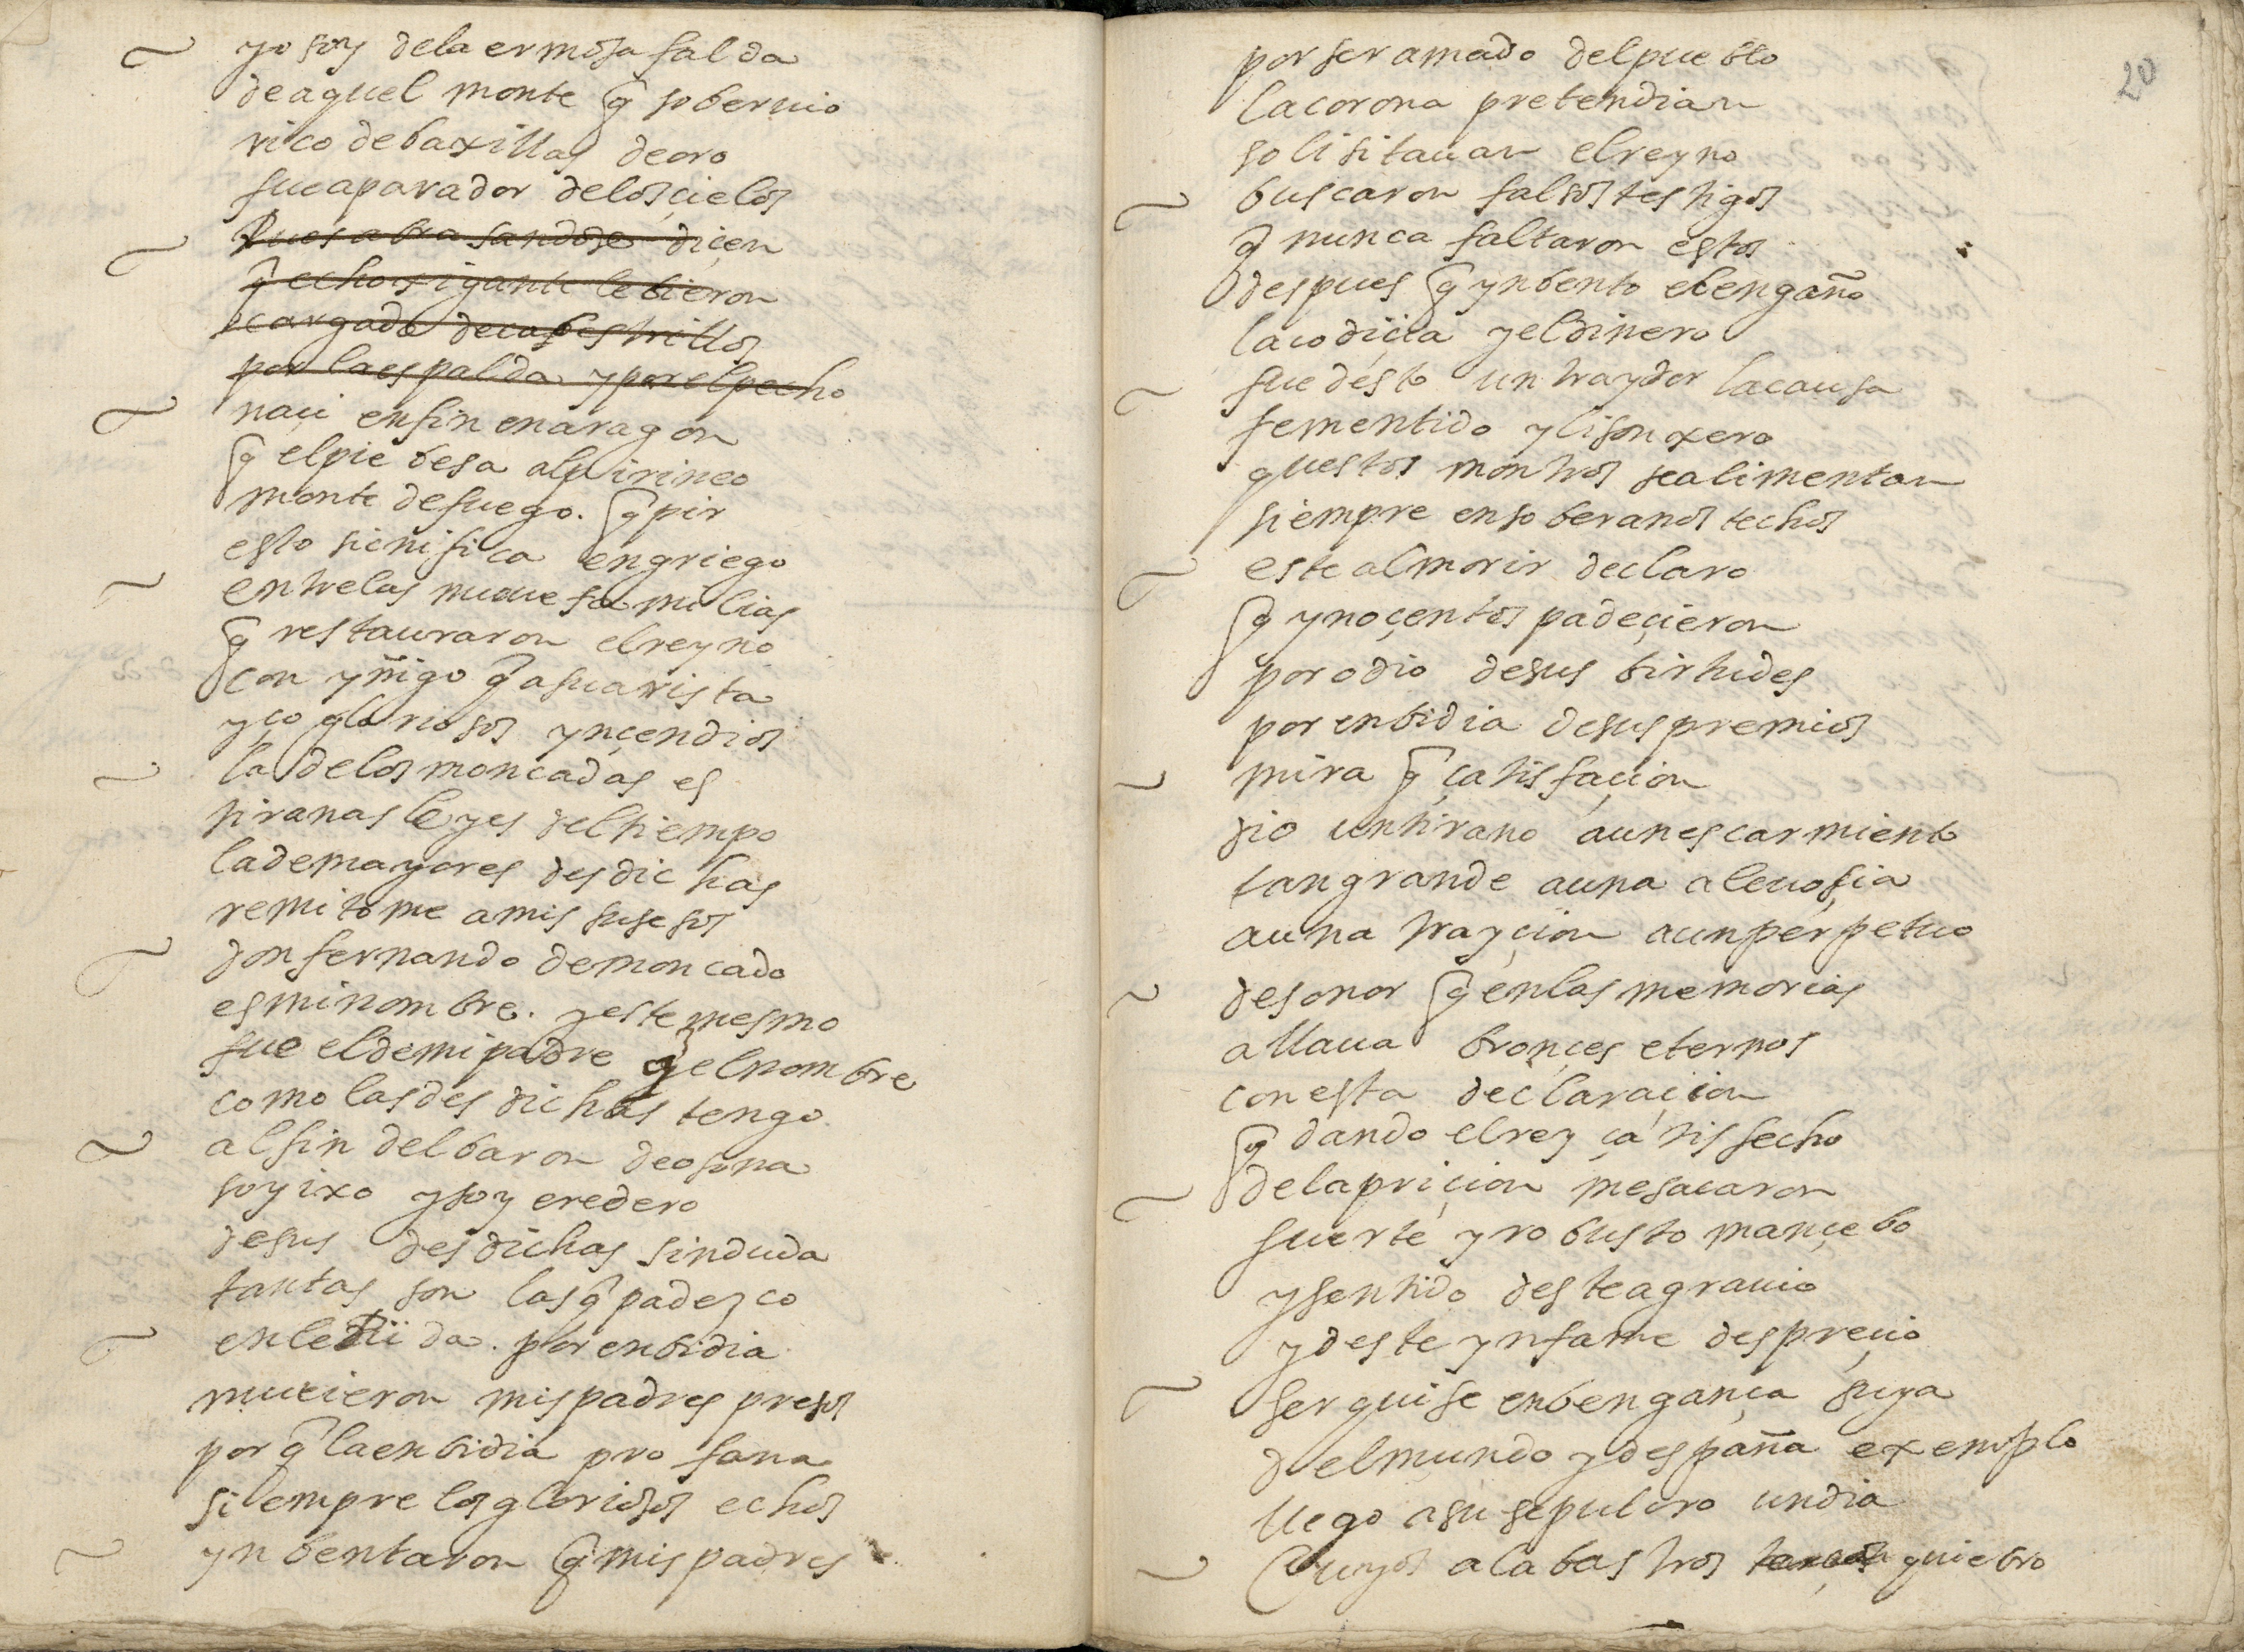 yo soy dela ermosa falda
de aquel monte q̃ soberuio
rico de baxillas de oro
fue aparador delos çielos
Pues abrasandose diçen
q̃ echo gigante le bieron
cargado de cabestrillos
por la espalda y por el pecho
naçi en fin en aragon
q̃ el pie besa al pirineo
monte de fuego. q̃ pir
esto sicnifica en griego
entre las nueue familias
q̃ restauraron el reyno
con yñigo q̃ asu arista
yço gloriosos ynçendios
la de los moncadas es
tiranas leyes del tiempo
la de mayores desdichas
remitome a mis susesos
don fernando de moncado
es mi nombre. y este mesmo
fue el de mi padre q̃ el nombre
como las desdichas tengo
al fin del baron de osona
soy ixo y soy eredero
de sus desdichas sin duda
tantas son las q̃ padezco
en lerida. por enbidia
murieron mis padres presos
por q̃ la enbidia profana
siempre los gloriosos echos
ynbentaron q̃ mis padres
20
por ser amado del pueblo
la corona pretendian
solisitauan el reyno
buscaron falsos testigos
q̃ nunca faltaron estos
despues q̃ ynbento el engaño
la codiçia y el dinero
fue desto un traydor la causa
fementido y lisonxero
questos montros se alimentan
siempre en soberanos techos
este al morir declaro
q̃ ynoçentes padeçieron
por odio de sus birtudes
por enbidia de sus premios
mira q̃ çatisfaçion
dio un tirano a un escarmiento
tan grande a una aleuosia
a una trayçion a un perpetuo
desonor q̃ en las memorias
allaua bronçes eternos
con esta declaraçion
q̃dando el rey çatisfecho
de la priçion me sacaron
fuerte y robusto mançebo
y sentido deste agrauio
y deste ynfame despreçio
ser quise en bengança suya
del mundo y despaña exemplo
llego a su sepulcro un dia
Cuyos alabastros quiebro